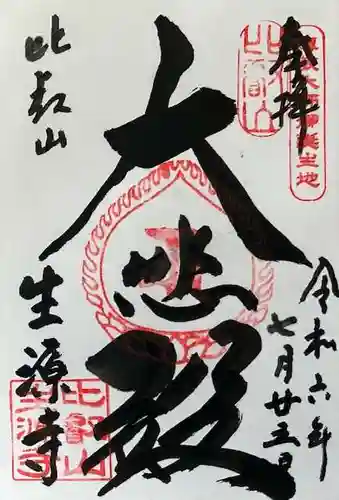 奉拝
大師御誕生地
比叡山
令和六年
七月廿五日
大悲殿
比叡山
生源寺
比叡山
生源寺